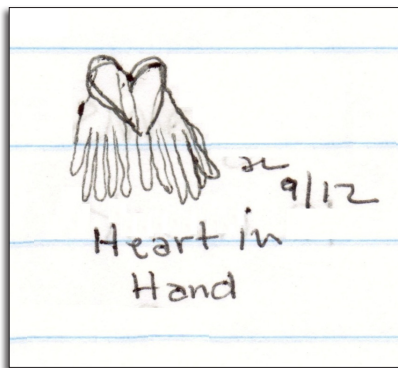 9/12
Heart in
Hand